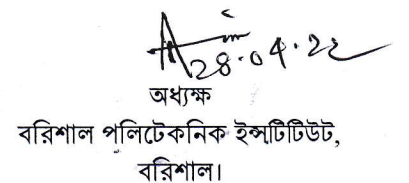 28.04.22
অধ্যক্ষ
বরিশাল পলিটেকনিক ইন্সটিটিউট,
বরিশাল।